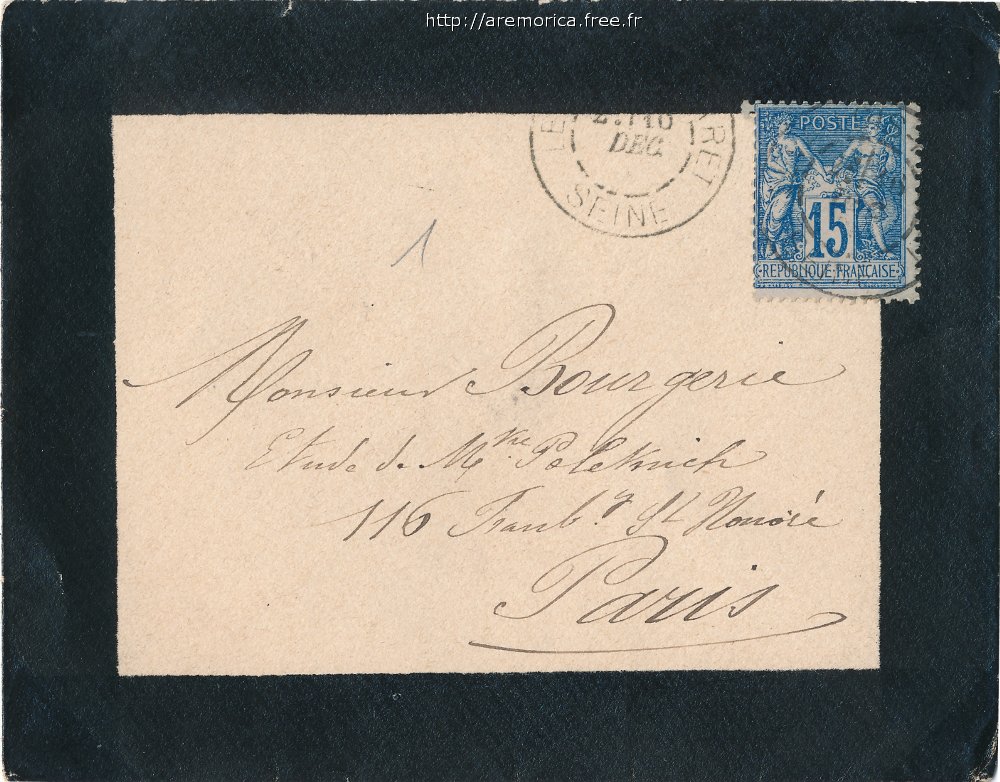 http://aremorica.free.fr
DEC.
SEINE
POSTE
15
REPUBLIQUE FRANÇAISE
1
Monsieur Bourgerie
Etude de Mtre
116 Faubg St Honoré
Paris